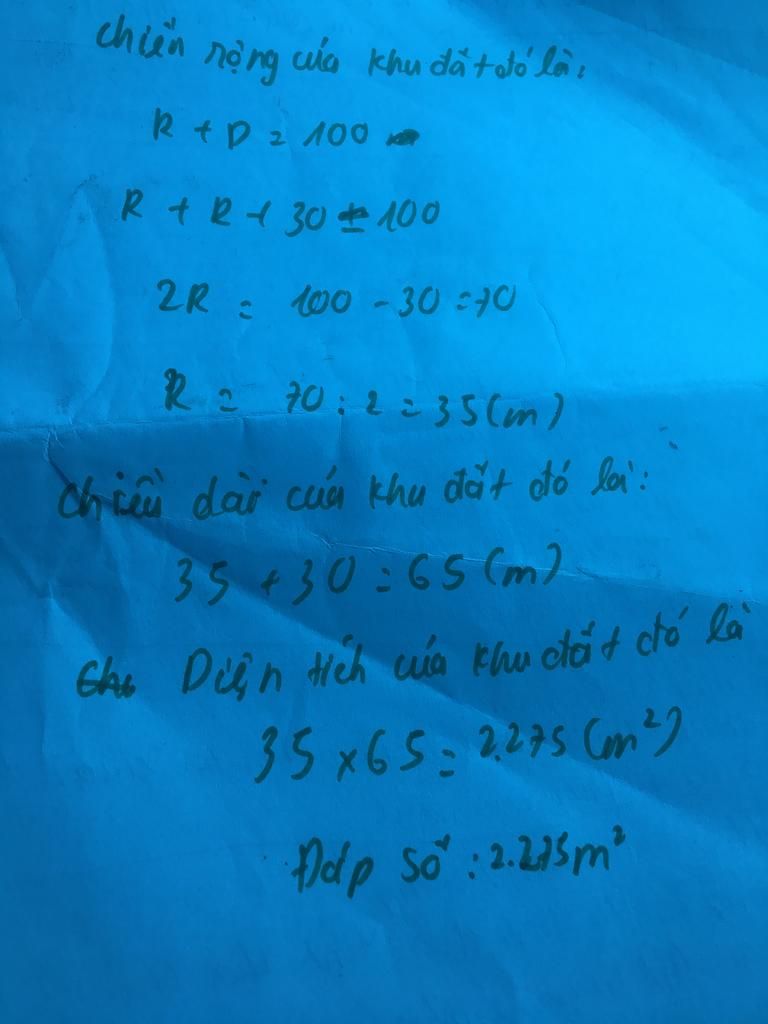 Chiều rộng của khu đất đó là:
R + D = 100
R + R + 30 = 100
2R = 100 - 30 = 70
R = 70 : 2 = 35 (m)
Chiều dài của khu đất đó là:
35 + 30 = 65 (m)
Diện tích của khu đất đó là
35 x 65 = 2.275 (m²)
Đáp số : 2.275m²